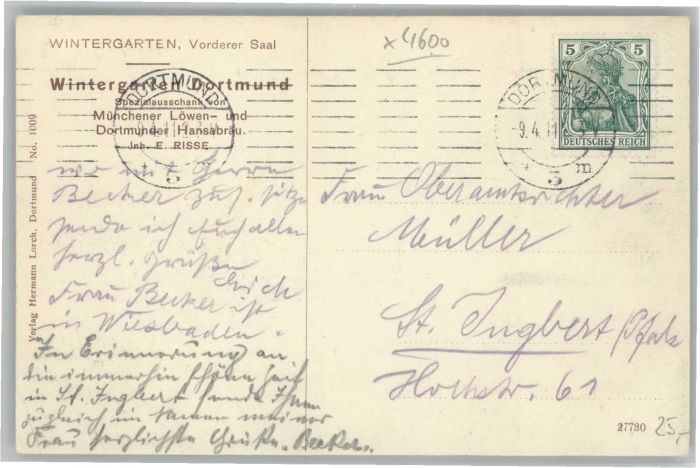 WINTERGARTEN, Vorderer Saal
x 4600
5 5
DEUTSCHES REICH
DORTMUND
-9.4.11
5 m
DORTMUND
5
Wintergarten Dortmund
Spezialausschank von
Münchener Löwen- und
Dortmunder Hansabräu.
Inh. E. RISSE.
Verlag Hermann Lorch, Dortmund No. 1009
wo mit Herrn
Becker zus. sitze
sende ich Euch allen
herzl. Grüße
Erich
Frau Becker ist
in Wiesbaden.
In Erinnerung an
die immerhin schöne Zeit
in St. Ingbert sende Ihnen
zugleich im Namen meiner
Frau herzlichste Grüße. Becker.
Frau Oberamtsrichter
Müller
St. Ingbert (Pfalz
Holtstr. 61
27730
25,-